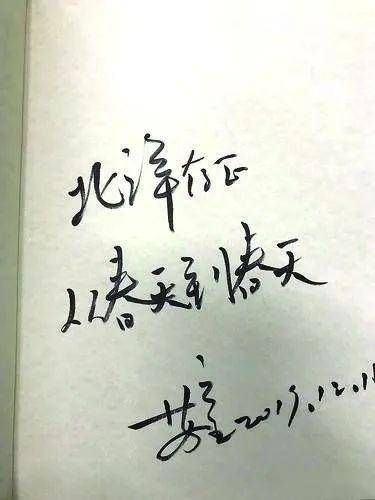 北洋存正
从春天到春天
2019.12.1